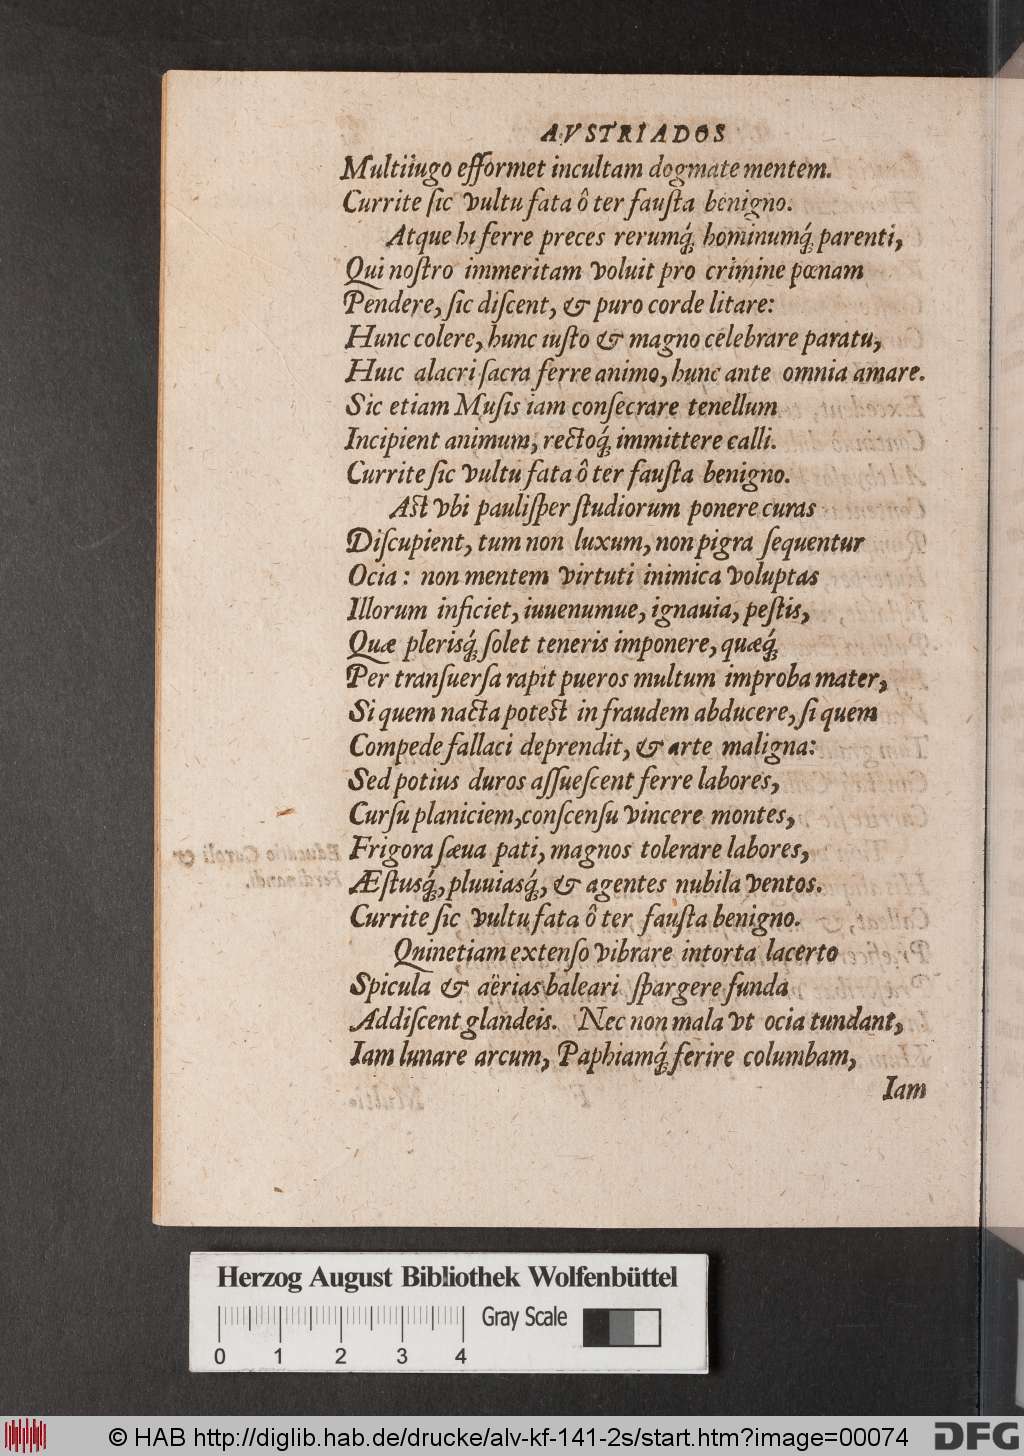 AVSTRIADOS
Multiiugo efformet incultam dogmate mentem.
Currite ſic vultu fata ô ter fauſta benigno.
Atque hi ferre preces rerumq́; hominumq́; parenti,
Qui noſtro immeritam voluit pro crimine pœnam
Pendere, ſic diſcent, & puro corde litare:
Hunc colere, hunc iuſto & magno celebrare paratu,
Huic alacri ſacra ferre animo, hunc ante omnia amare.
Sic etiam Muſis iam conſecrare tenellum
Incipient animum, rectoq́; immittere calli.
Currite ſic vultu fata ô ter fauſta benigno.
Aſt vbi pauliſper ſtudiorum ponere curas
Diſcupient, tum non luxum, non pigra ſequentur
Ocia: non mentem virtuti inimica voluptas
Illorum inficiet, iuuenumue, ignauia, peſtis,
Quæ plerisq́; ſolet teneris imponere, quæq́;
Per tranſuerſa rapit pueros multum improba mater,
Si quem nacta poteſt in fraudem abducere, ſi quem
Compede fallaci deprendit, & arte maligna:
Sed potius duros aſſueſcent ferre labores,
Curſu planiciem, conſcenſu vincere montes,
Frigora ſæua pati, magnos tolerare labores,
Æſtusq́;, pluuiasq́;, & agentes nubila ventos.
Currite ſic vultu fata ô ter fauſta benigno.
Qninetiam extenſo vibrare intorta lacerto
Spicula & aërias baleari ſpargere funda
Addiſcent glandeis. Nec non mala vt ocia tundant,
Iam lunare arcum, Paphiamq́; ferire columbam,
Iam
Herzog August Bibliothek Wolfenbüttel
Gray Scale
0 1 2 3 4
© HAB http://diglib.hab.de/drucke/alv-kf-141-2s/start.htm?image=00074
DFG